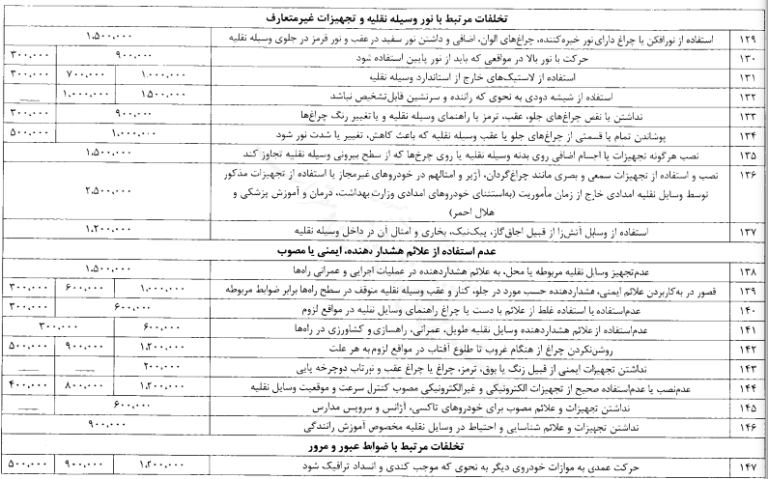 تخلفات مرتبط با نور وسیله نقلیه و تجهیزات غیرمتعارف
۱۲۹ استفاده از نورافکن یا چراغ دارای نور خیره‌کننده، چراغ‌های الوان، اضافی و داشتن نور سفید در عقب و نور قرمز در جلوی وسیله نقلیه ۱،۵۰۰،۰۰۰
۱۳۰ حرکت با نور بالا در مواقعی که باید از نور پایین استفاده شود ۹۰۰،۰۰۰ ۳۰۰،۰۰۰
۱۳۱ استفاده از لاستیک‌های خارج از استاندارد وسیله نقلیه ۱،۰۰۰،۰۰۰ ۷۰۰،۰۰۰ ۳۰۰،۰۰۰
۱۳۲ استفاده از شیشه دودی به نحوی که راننده و سرنشین قابل‌تشخیص نباشد ۱،۵۰۰،۰۰۰ ۱،۰۰۰،۰۰۰ ___
۱۳۳ نداشتن یا نقص چراغ‌های جلو، عقب، ترمز یا راهنمای وسیله نقلیه و یا تغییر رنگ چراغ‌ها ۹۰۰،۰۰۰ ۳۰۰،۰۰۰
۱۳۴ پوشاندن تمام یا قسمتی از چراغ‌های جلو یا عقب وسیله نقلیه که باعث کاهش، تغییر یا شدت نور شود ۱،۰۰۰،۰۰۰ ۵۰۰،۰۰۰
۱۳۵ نصب هرگونه تجهیزات یا اجسام اضافی روی بدنه وسیله نقلیه یا روی چرخ‌ها که از سطح بیرونی وسیله نقلیه تجاوز کند ۱،۵۰۰،۰۰۰
۱۳۶ نصب و استفاده از تجهیزات سمعی و بصری مانند چراغ‌گردان، آژیر و امثالهم در خودروهای غیرمجاز یا استفاده از تجهیزات مذکور
توسط وسایل نقلیه امدادی خارج از زمان مأموریت (به‌استثنای خودروهای امدادی وزارت بهداشت، درمان و آموزش پزشکی و ۲،۵۰۰،۰۰۰
هلال احمر)
۱۳۷ استفاده از وسایل آتش‌زا از قبیل اجاق‌گاز، پیک‌نیک، بخاری و امثال آن در داخل وسیله نقلیه ۱،۲۰۰،۰۰۰
عدم استفاده از علائم هشدار دهنده، ایمنی یا مصوب
۱۳۸ عدم‌تجهیز وسایل نقلیه مربوطه یا محل، به علائم هشداردهنده در عملیات اجرایی و عمرانی راه‌ها ۱،۵۰۰،۰۰۰
۱۳۹ قصور در به‌کاربردن علائم ایمنی، هشداردهنده حسب مورد در جلو، کنار و عقب وسیله نقلیه متوقف در سطح راه‌ها برابر ضوابط مربوطه ۱،۰۰۰،۰۰۰ ۶۰۰،۰۰۰ ۳۰۰،۰۰۰
۱۴۰ عدم‌استفاده یا استفاده غلط از علائم با دست یا چراغ راهنمای وسایل نقلیه در مواقع لزوم ۶۰۰،۰۰۰ ۳۰۰،۰۰۰
۱۴۱ عدم‌استفاده از علائم هشداردهنده وسایل نقلیه طویل، عمرانی، راهسازی و کشاورزی در راه‌ها ۶۰۰،۰۰۰ ۳۰۰،۰۰۰
۱۴۲ روشن‌نکردن چراغ از هنگام غروب تا طلوع آفتاب در مواقع لزوم به هر علت ۱،۲۰۰،۰۰۰ ۹۰۰،۰۰۰ ۵۰۰،۰۰۰
۱۴۳ نداشتن تجهیزات ایمنی از قبیل زنگ یا بوق، ترمز، چراغ یا چراغ عقب و نورتاب دوچرخه پایی ۲۰۰،۰۰۰ ___ ___
۱۴۴ عدم‌نصب یا عدم‌استفاده صحیح از تجهیزات الکترونیکی و غیرالکترونیکی مصوب کنترل سرعت و موقعیت وسایل نقلیه ۱،۲۰۰،۰۰۰ ۸۰۰،۰۰۰ ۴۰۰،۰۰۰
۱۴۵ نداشتن تجهیزات و علائم مصوب برای خودروهای تاکسی، آژانس و سرویس مدارس ۶۰۰،۰۰۰ ___
۱۴۶ نداشتن تجهیزات و علائم شناسایی و احتیاط در وسایل نقلیه مخصوص آموزش رانندگی ۹۰۰،۰۰۰
تخلفات مرتبط با ضوابط عبور و مرور
۱۴۷ حرکت عمدی به موازات خودروی دیگر به نحوی که موجب کندی و انسداد ترافیک شود ۱،۲۰۰،۰۰۰ ۹۰۰،۰۰۰ ۵۰۰،۰۰۰